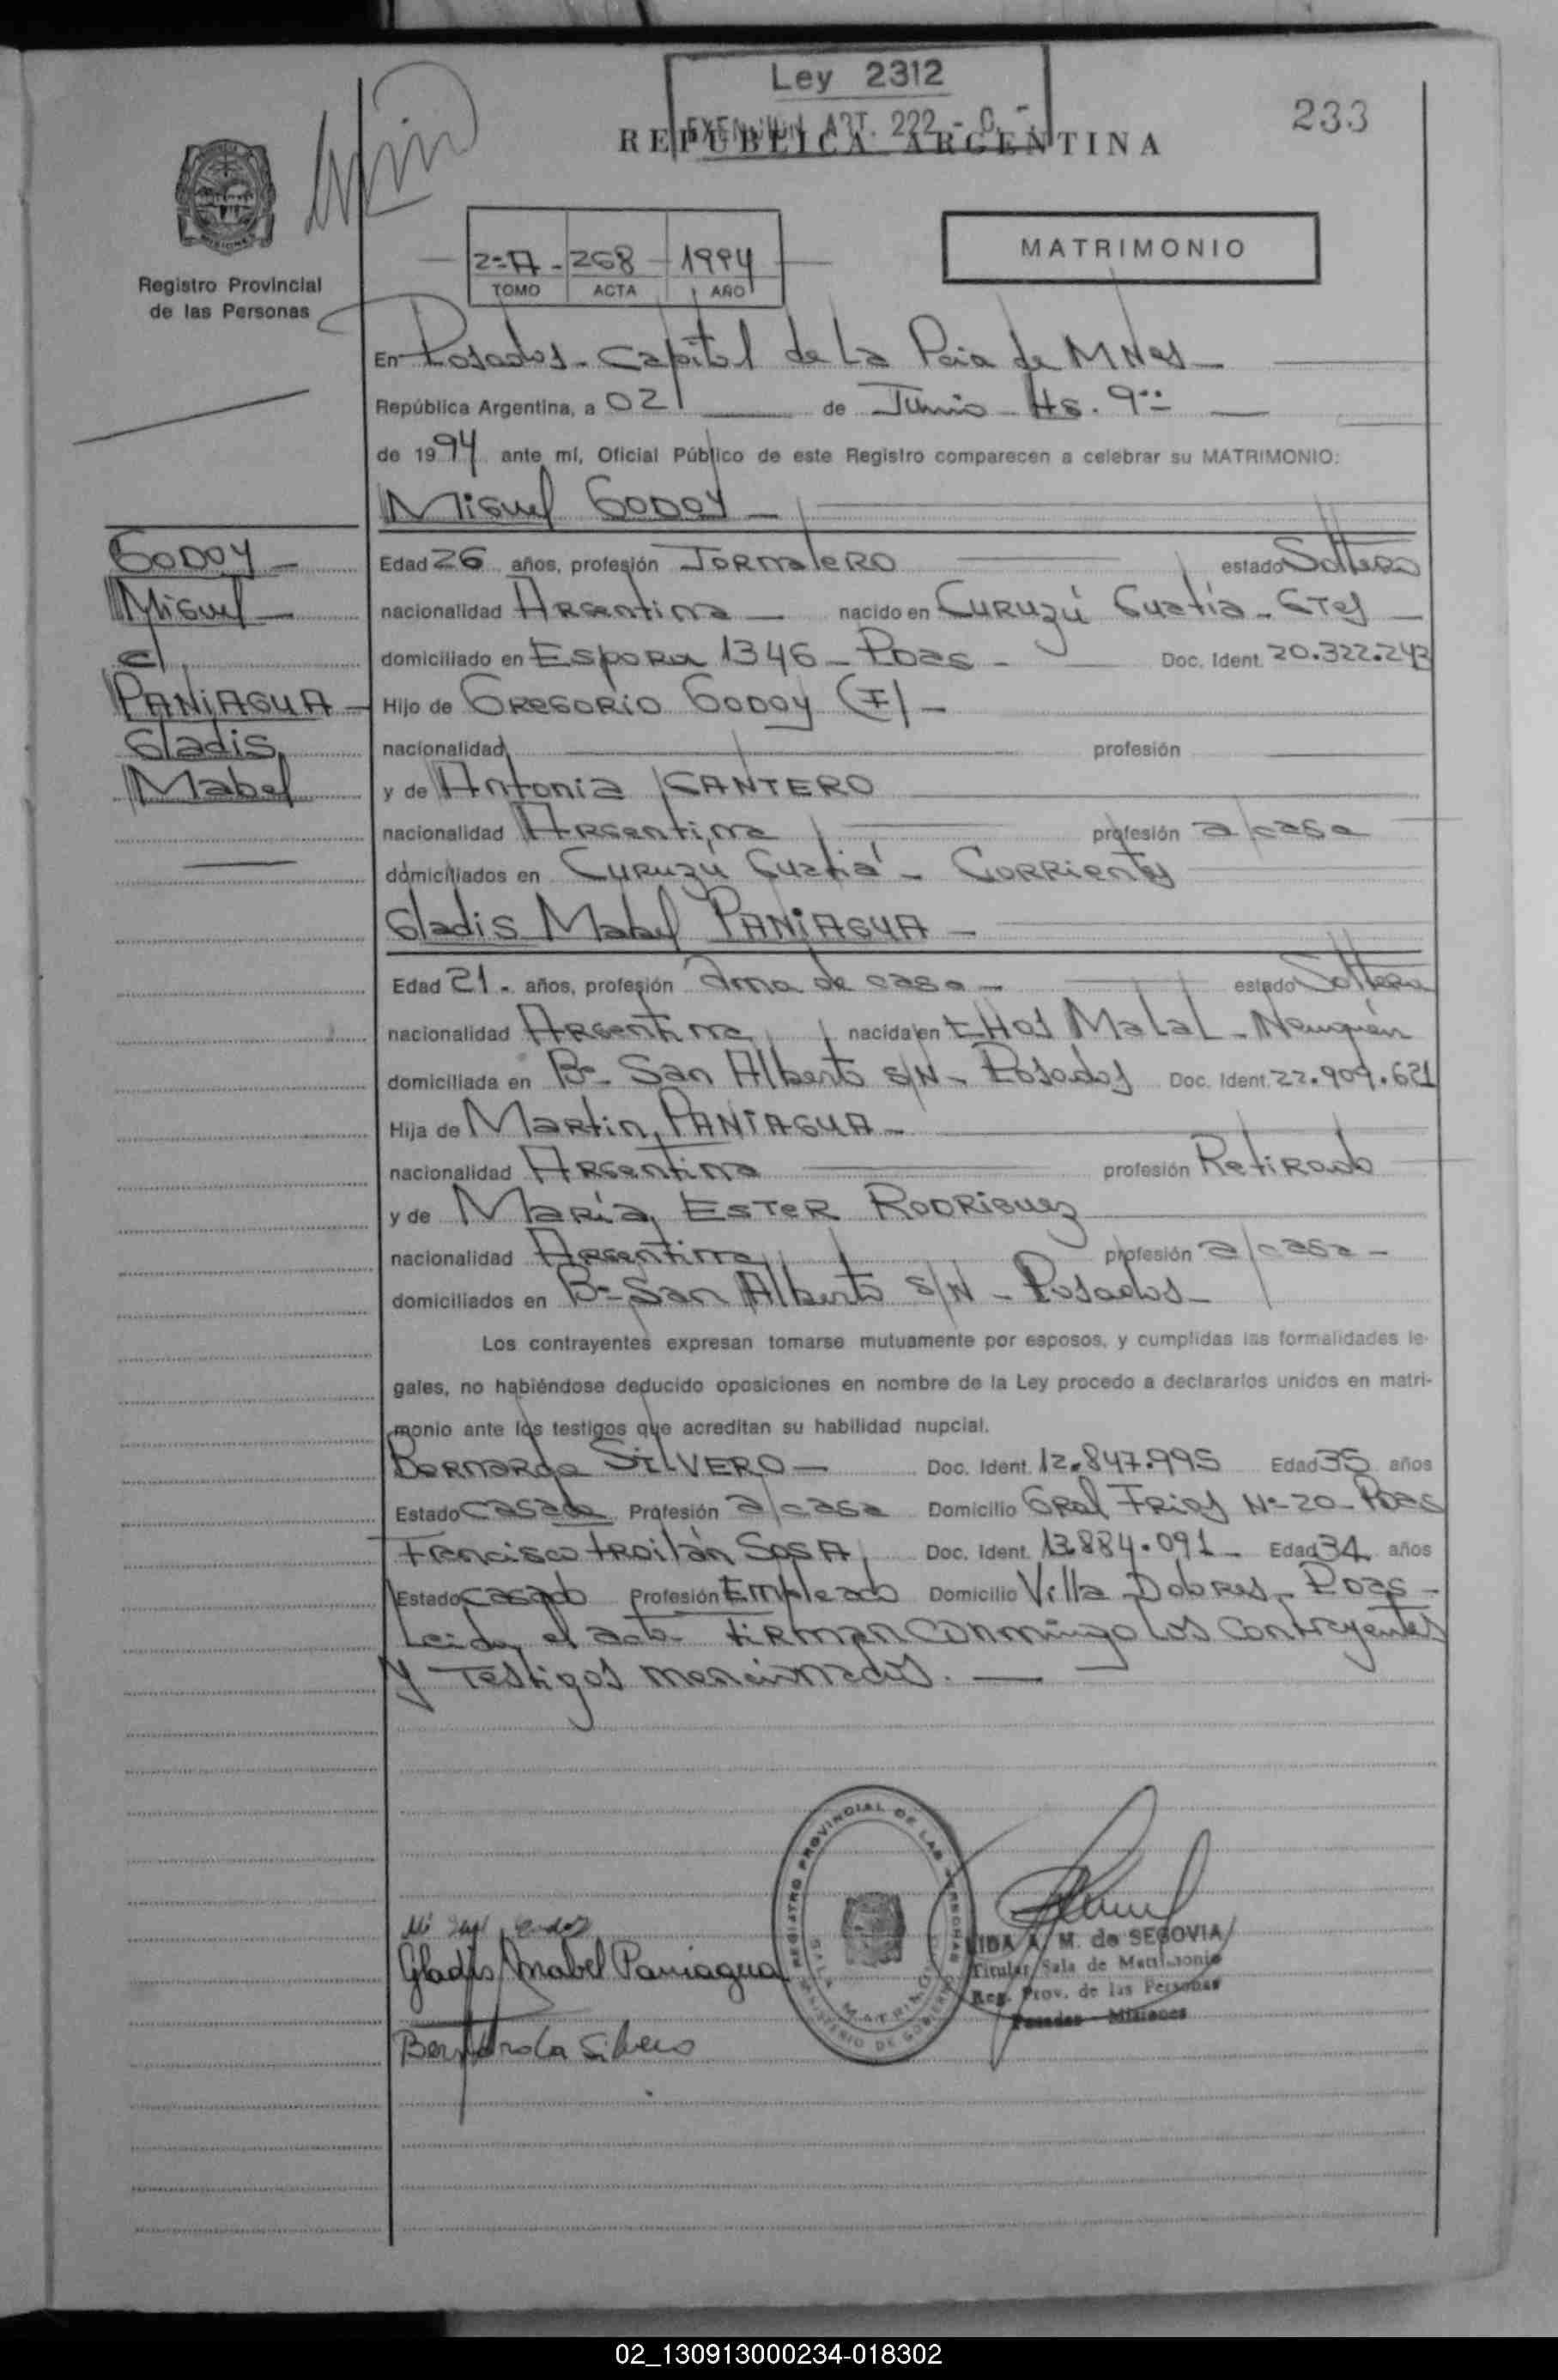 Ley 2312
EXENCION ART. 222 - 
233
REPUBLICA ARGENTINA
Registro Provincial
de las Personas
2=A - 268 1994
TOMO ACTA AÑO
MATRIMONIO
En Posadas - Capital de La Pcia de MNes -
República Argentina, a 02 de Junio - Hs. 9
de 1994 ante mí, Oficial Público de este Registro comparecen a celebrar su MATRIMONIO:
Miguel GODOY -
GODOY -
Miguel -
c/
PANIAGUA -
Gladis
Mabel
Edad 26 años, profesión JORNALERO estado Soltero
nacionalidad Argentina - nacido en Curuzú Cuatiá - Ctes -
domiciliado en Espora 1346 - Pdas - Doc. Ident. 20.322.243
Hijo de GREGORIO GODOY (F) -
nacionalidad profesión
y de Antonia CANTERO
nacionalidad Argentina profesión a/casa
domiciliados en Curuzú Cuatiá - Corrientes
Gladis Mabel PANIAGUA -
Edad 21 - años, profesión Ama de casa - estado Soltera
nacionalidad Argentina nacida en CHOS MALAL - Neuquén
domiciliada en Bº San Alberto S/N - Posadas Doc. Ident. 22.909.621
Hija de Martin PANIAGUA -
nacionalidad Argentina profesión Retirado
y de María ESTER RODRIGUEZ
nacionalidad Argentina profesión a/casa -
domiciliados en Bº San Alberto S/N - Posadas -
Los contrayentes expresan tomarse mutuamente por esposos, y cumplidas las formalidades le-
gales, no habiéndose deducido oposiciones en nombre de la Ley procedo a declararlos unidos en matri-
monio ante los testigos que acreditan su habilidad nupcial.
Bernarda SILVERO - Doc. Ident. 12.847.995 Edad 35 años
Estado casada Profesión a/casa Domicilio Gral Frias Nº 20 - Pdas
Francisco Troilán SOSA Doc. Ident. 13.884.091 - Edad 34 años
Estado casado Profesión Empleado Domicilio Villa Dolores - Pdas -
Leida el acta firman conmigo los contrayentes
y testigos mencionados. -
Gladis Mabel Paniagua
Bernarda Silvero
REGISTRO PROVINCIAL DE LAS PERSONAS
MINISTERIO DE GOBIERNO
A. M. de SEGOVIA
Titular Sala de Matrimonio
Reg. Prov. de las Personas
Posadas - Misiones
02_130913000234-018302